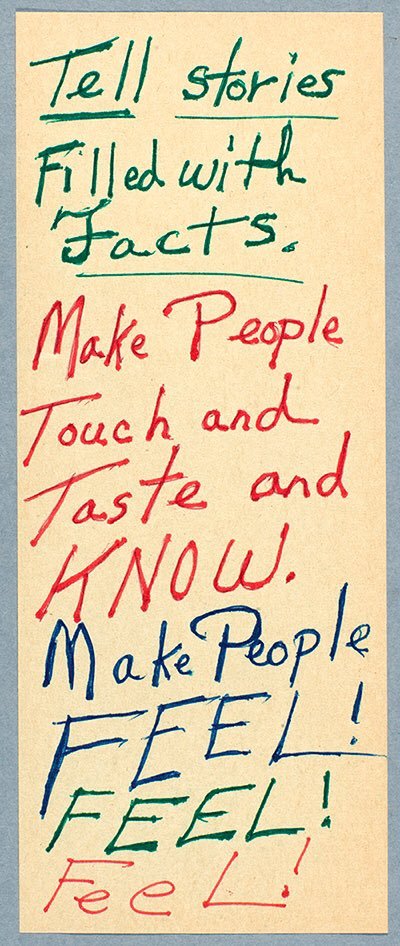 Tell stories
Filled with
Facts.
Make People
Touch and
Taste and
KNOW.
Make People
FEEL!
FEEL!
FeeL!